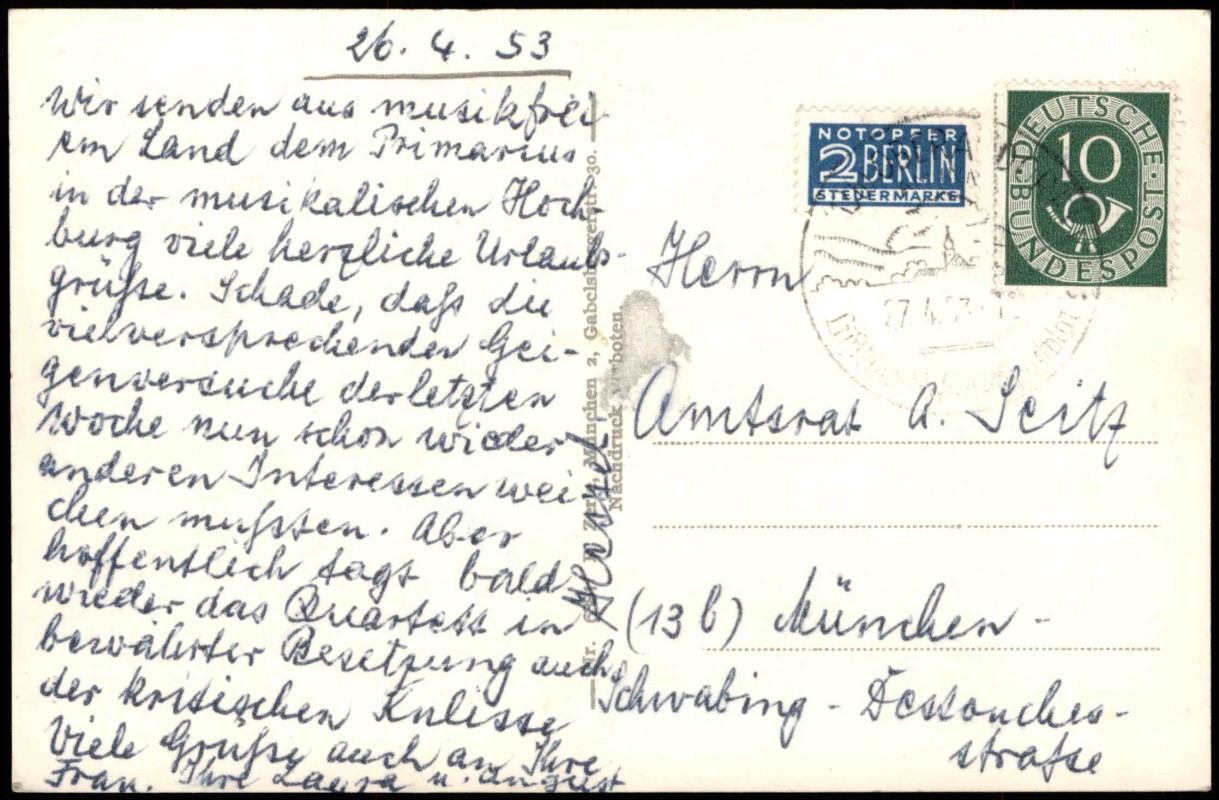 26. 4. 53
Wir senden aus musikfrei-
em Land dem Primarius
in der musikalischen Hoch-
burg viele herzliche Urlaubs-
grüße. Schade, daß die
vielversprechenden Gei-
genversuche der letzten
Woche nun schon wieder
anderen Interessen wei-
chen mußten. Aber
hoffentlich tagt bald
wieder das Quartett in
bewährter Besetzung auch
der kritischen Kulisse
Viele Grüße auch an Ihre
Frau. Ihre Laura u. August
München 2, Gabelsbergerstr. 30.
Nachdruck verboten
NOTOPFER
2 BERLIN
STEUERMARKE
DEUTSCHE
BUNDESPOST
10
27.4.53
Herrn
Amtsrat A. Seitz
(13b) München-
Schwabing - Dessouches-
straße